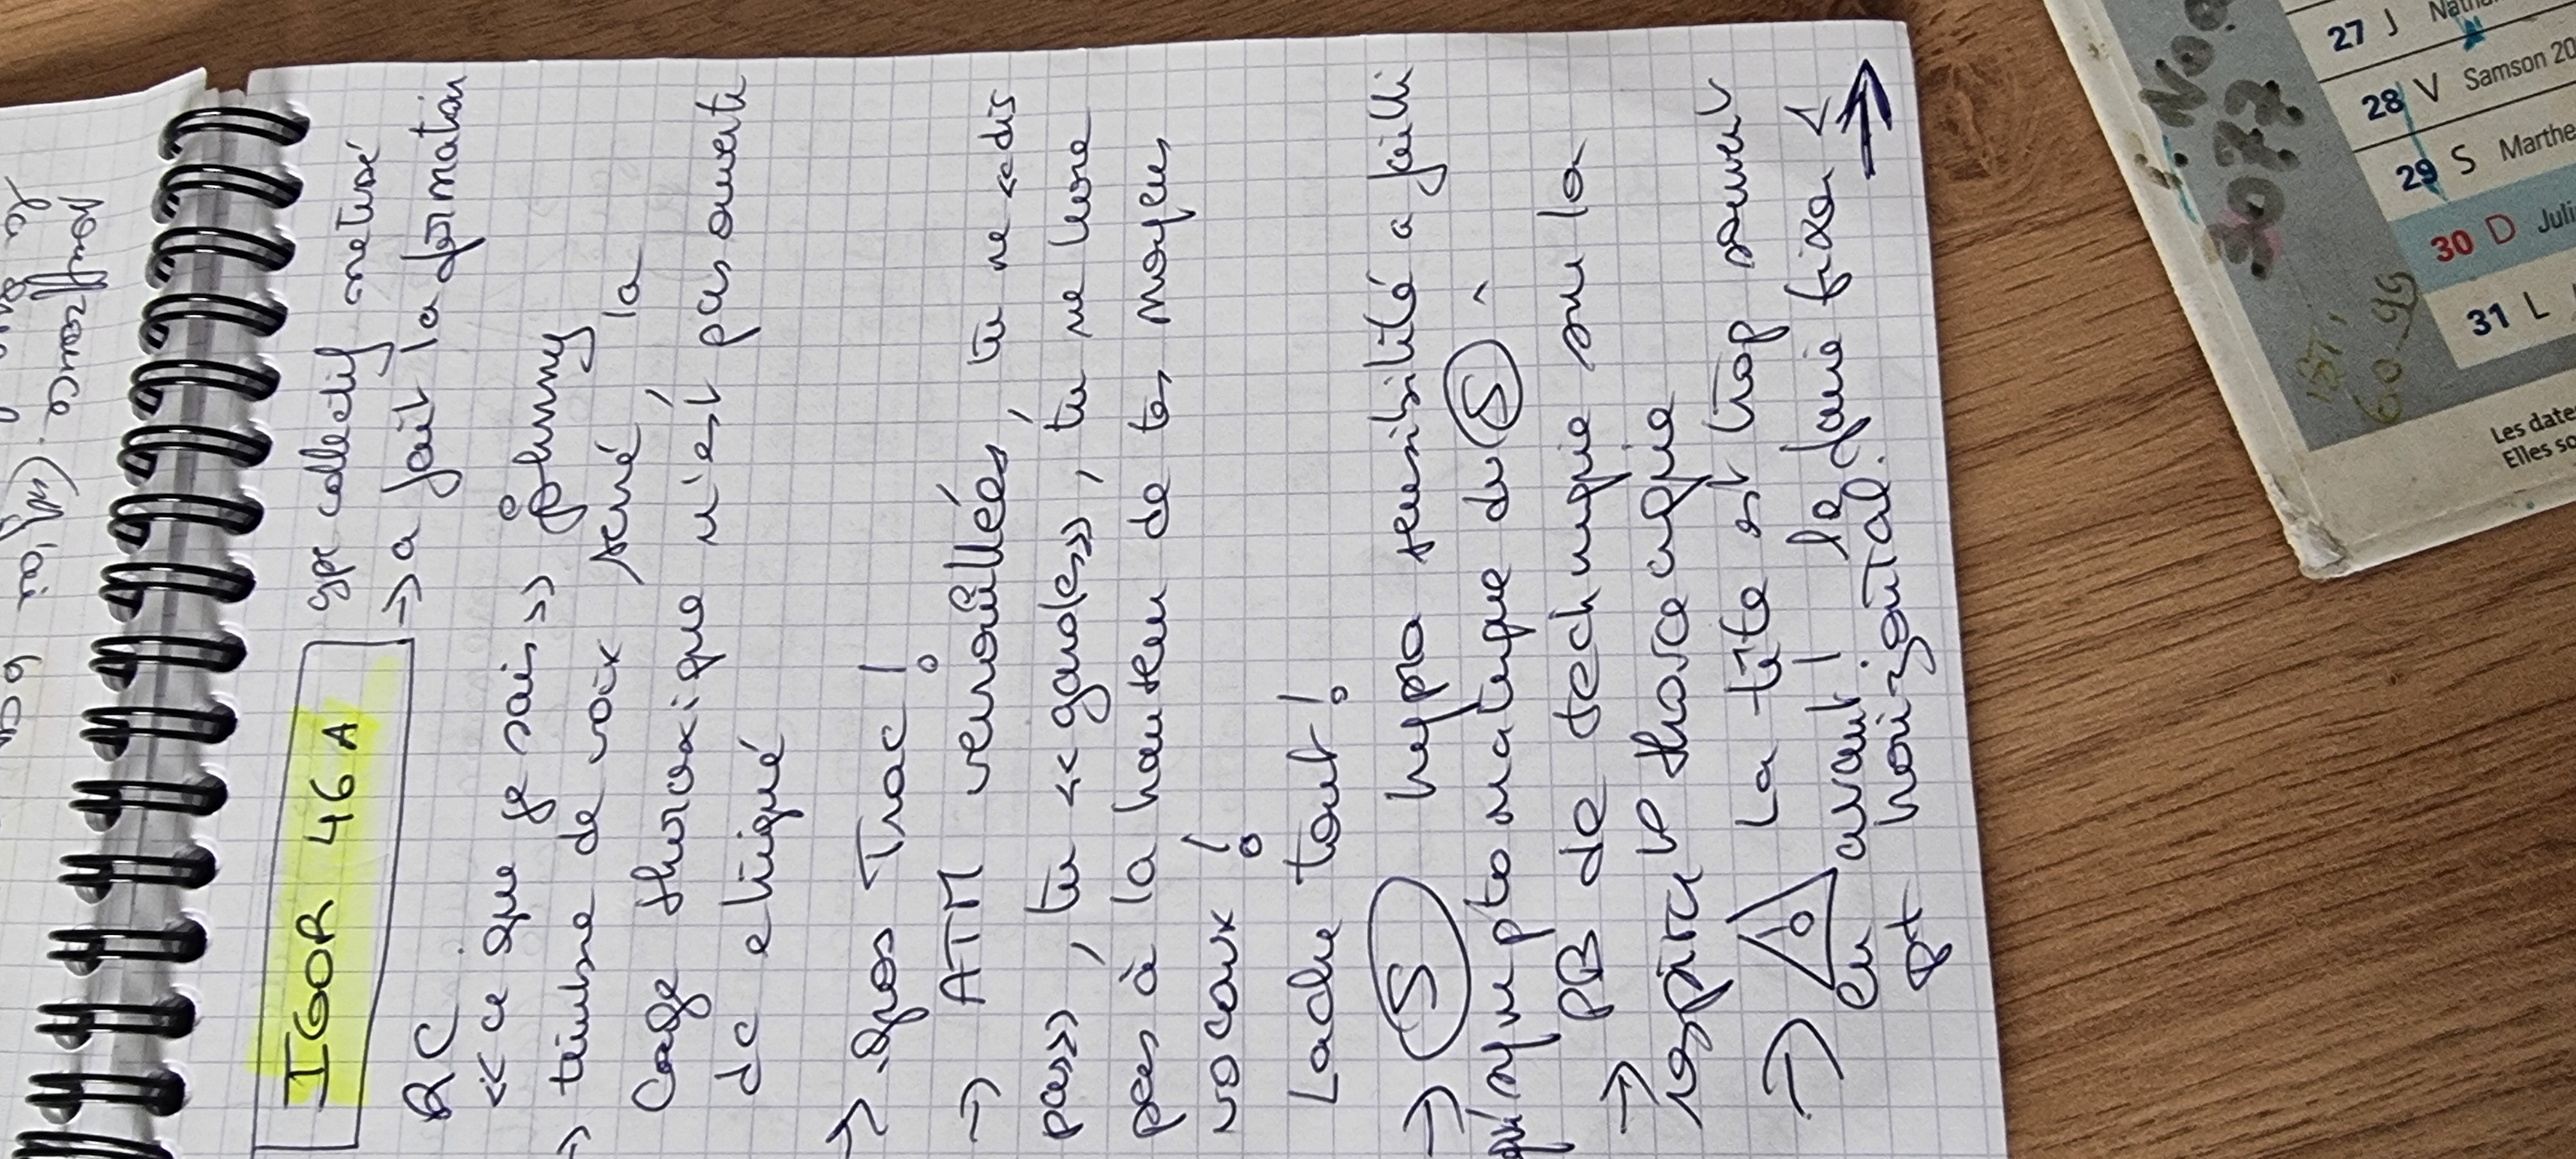 IGOR 46 A
type collectif métissé
→ a fait la formation
RC
« ce que je sais » Johnny
→ timbre de voix serré, la
Cage thoraxique n'est pas ouverte
dc étriqué
→ gros Trac !
→ ATM verrouillées, tu ne « dis
pas », tu « gardes », tu ne livre
pas à la hauteur de tes moyens
vocaux !
Lache tout !
→ S hyper sensibilité a jailli
symptomatique du S
→ PB de technique sur la
respirat° thoracique
→ La tête est trop souvent
en avant ! le faire fixer
pt horizontal.
→
27 J
28 V Samson 20
29 S Marthe
30 D Juli
31 L
Les date
Elles so